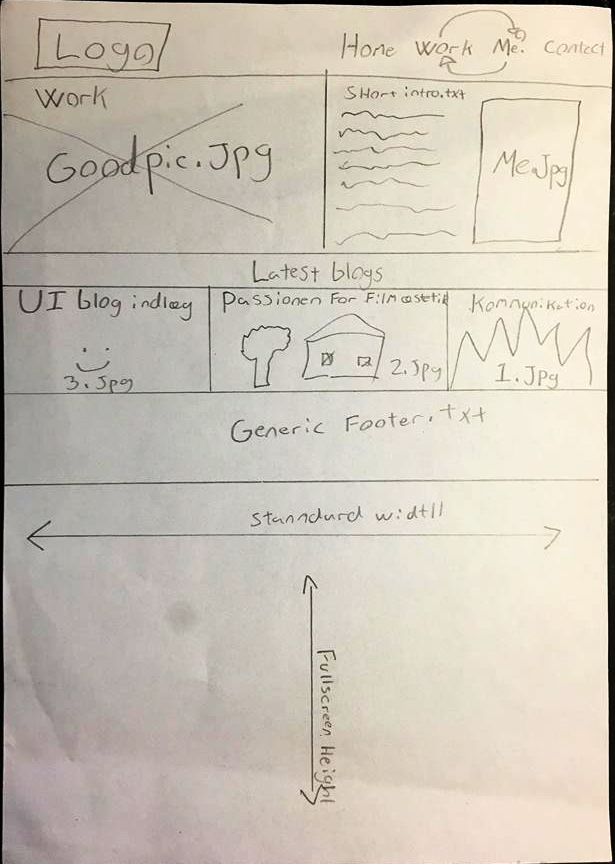 Logo
Home Work Me. Contact
Work
Goodpic.Jpg
SHort intro.txt
Me.Jpg
Latest blogs
UI blog indlæg
3.Jpg
Passionen For Filmæstetik
2.Jpg
Kommunikation
1.Jpg
Generic Footer.txt
Stanndurd width
Fullscreen Height